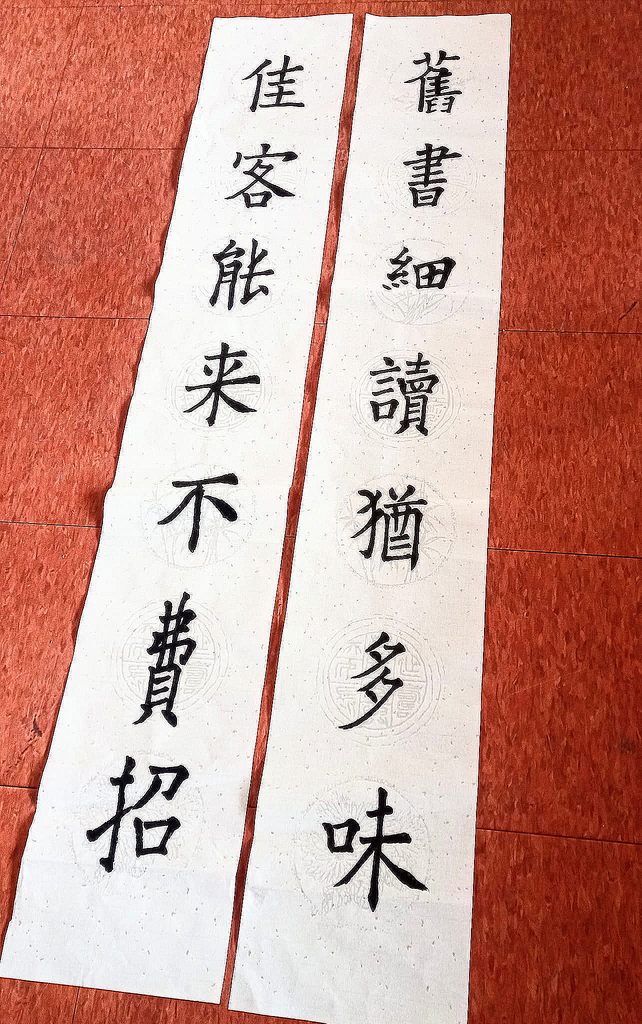 舊書細讀猶多味
佳客能来不費招